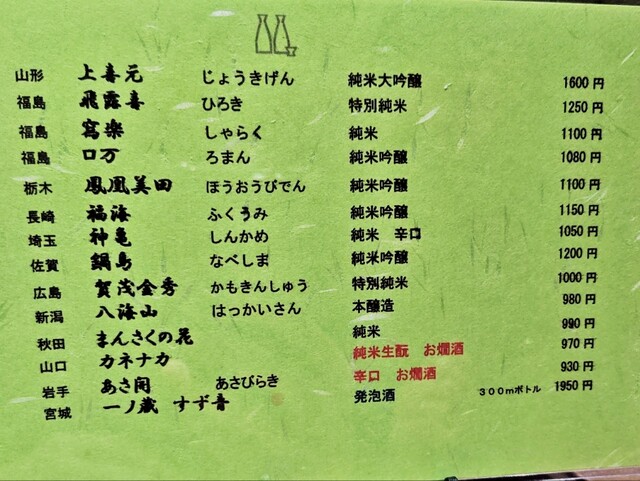 山形 上喜元 じょうきげん 純米大吟醸 1600円
福島 飛露喜 ひろき 特別純米 1250円
福島 寫楽 しゃらく 純米 1100円
福島 ロ万 ろまん 純米吟醸 1080円
栃木 鳳凰美田 ほうおうびでん 純米吟醸 1100円
長崎 福海 ふくうみ 純米吟醸 1150円
埼玉 神亀 しんかめ 純米 辛口 1050円
佐賀 鍋島 なべしま 純米吟醸 1200円
広島 賀茂金秀 かもきんしゅう 特別純米 1000円
新潟 八海山 はっかいさん 本醸造 980円
秋田 まんさくの花 純米 990円
山口 カネナカ 純米生酛 お燗酒 970円
岩手 あさ開 あさびらき 辛口 お燗酒 930円
宮城 一ノ蔵 すず音 発泡酒 300mボトル 1950円